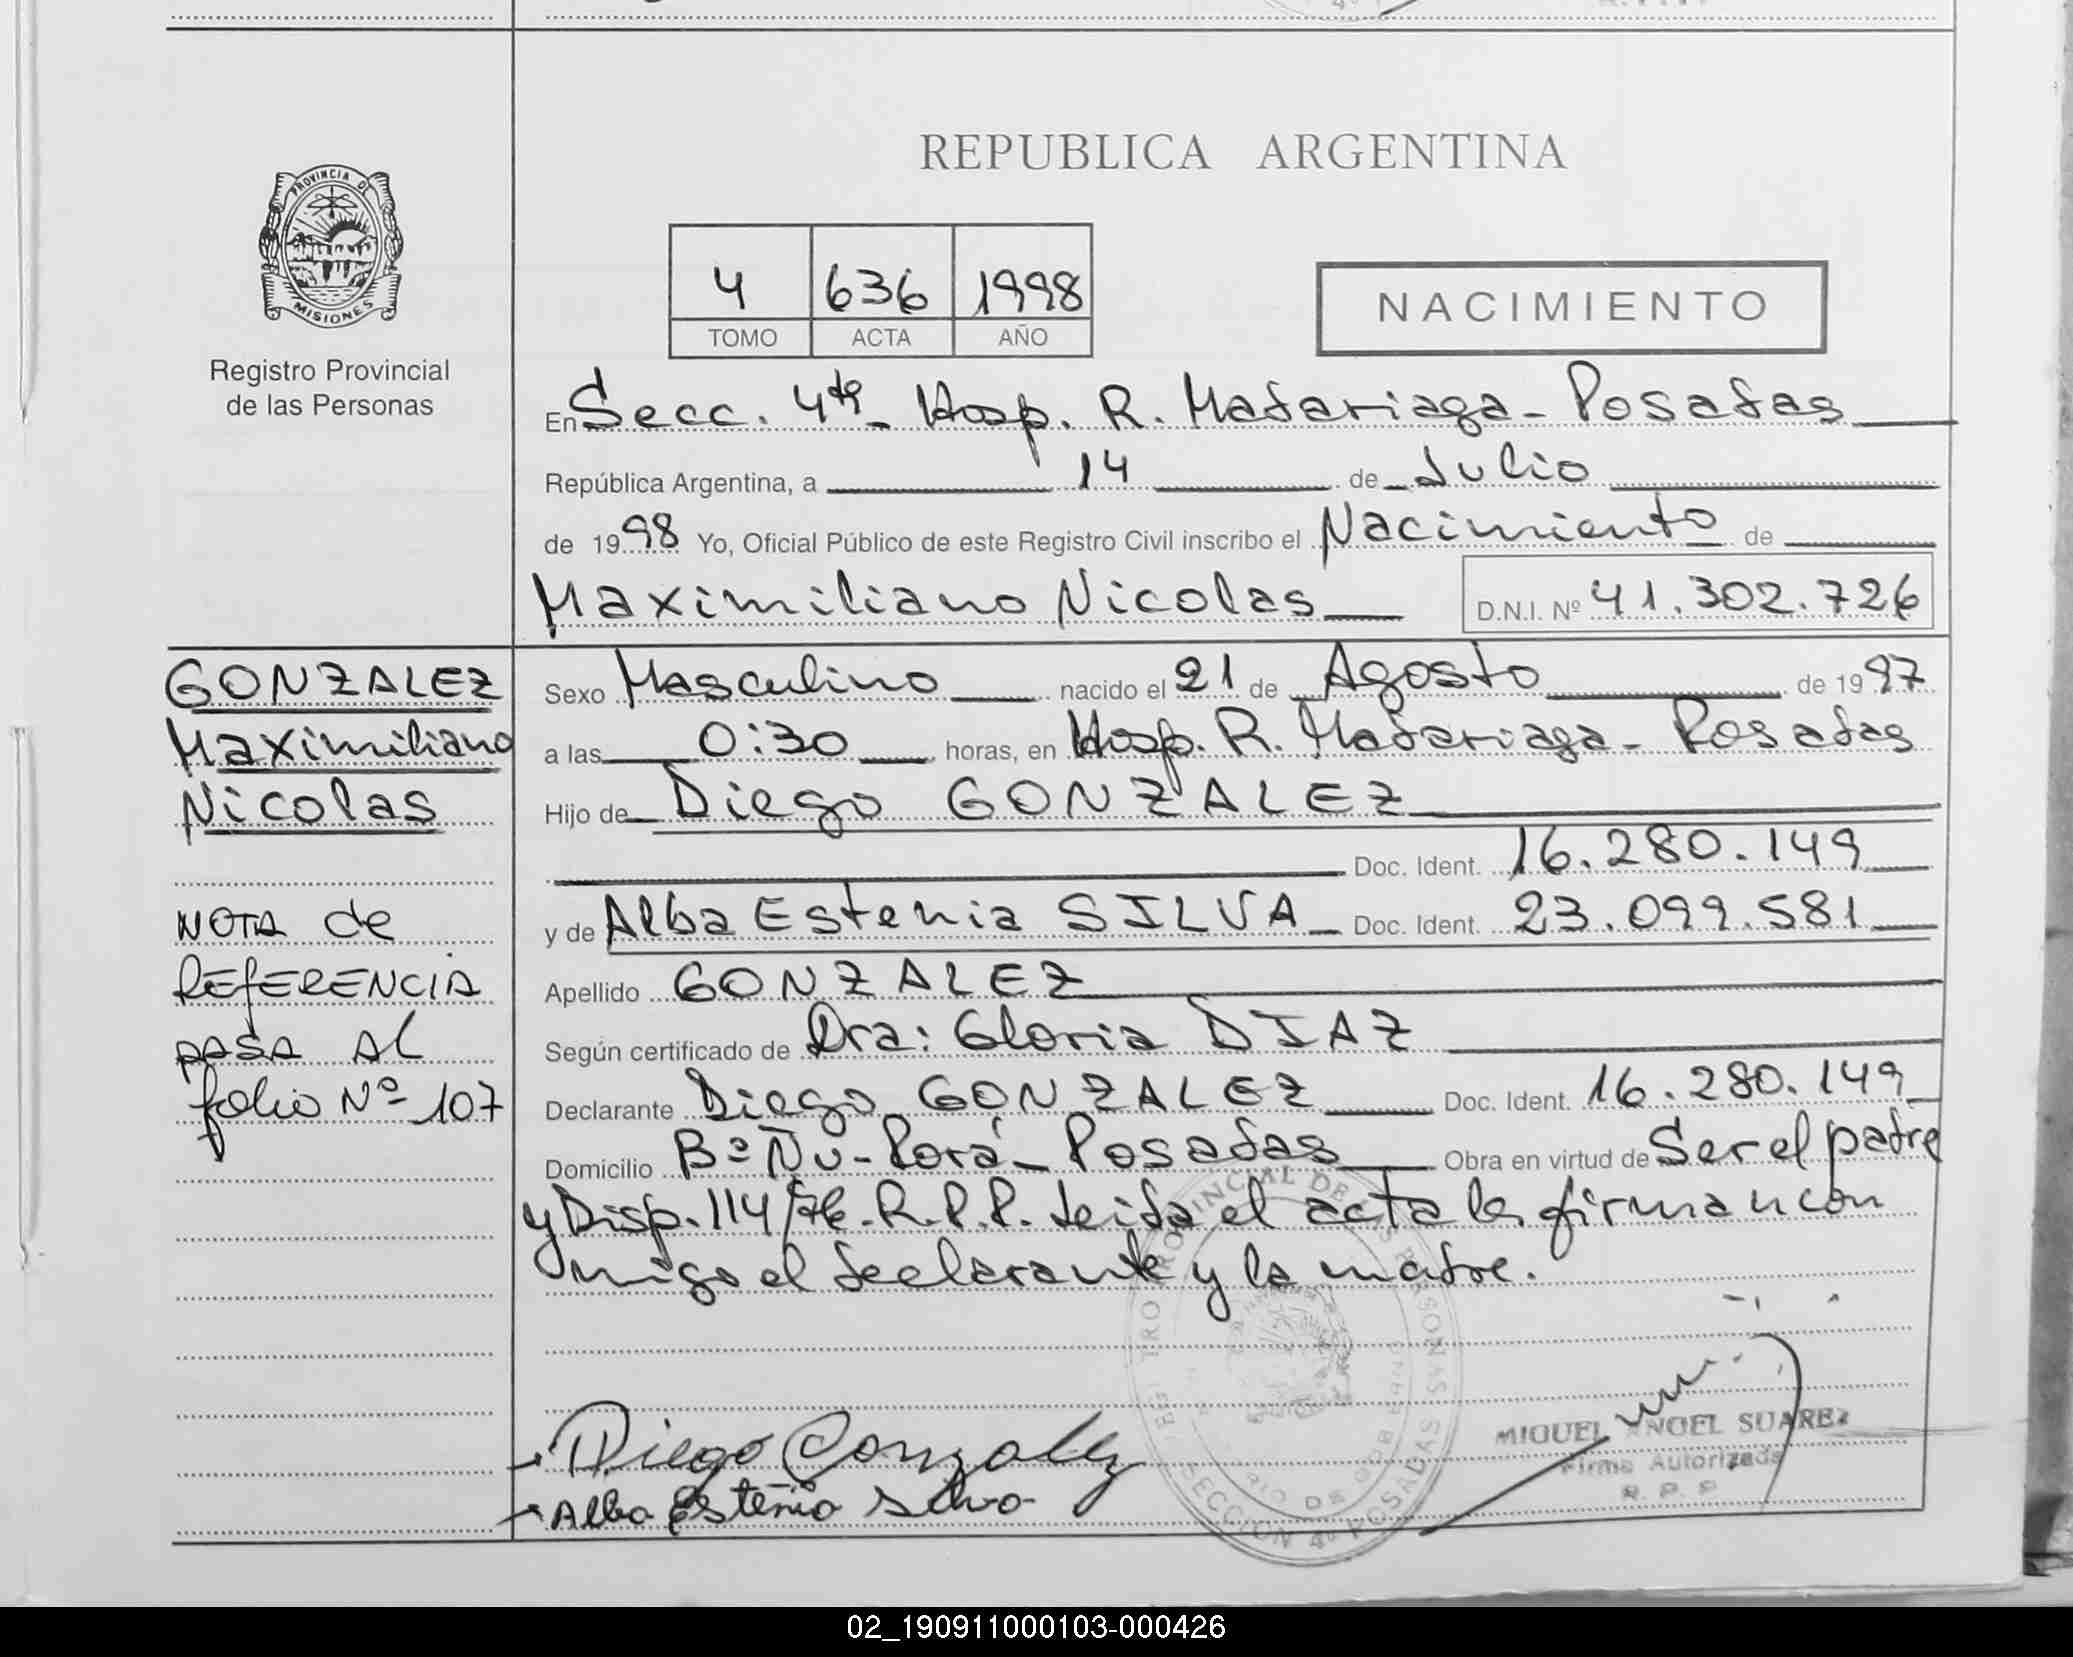 REPUBLICA ARGENTINA
PROVINCIA DE
MISIONES
Registro Provincial
de las Personas
4 636 1998
TOMO ACTA AÑO
NACIMIENTO
En Secc. 4ta- Hosp. R. Madariaga- Posadas
República Argentina, a 14 de Julio
de 1998 Yo, Oficial Público de este Registro Civil inscribo el Nacimiento de
Maximiliano Nicolas D.N.I. Nº 41.302.726
GONZALEZ
Maximiliano
Nicolas
NOTA de
REFERENCIA
PASA AL
folio Nº 107
Sexo Masculino nacido el 21 de Agosto de 1997
a las 0:30 horas, en Hosp. R. Madariaga- Posadas
Hijo de Diego GONZALEZ
Doc. Ident. 16.280.149
y de Alba Estenia SILVA Doc. Ident. 23.099.581
Apellido GONZALEZ
Según certificado de Dra: Gloria DIAZ
Declarante Diego GONZALEZ Doc. Ident. 16.280.149
Domicilio Bº Ñu-Porá- Posadas Obra en virtud de Ser el padre
y Disp. 114/76-R.P.P. Leida el acta la firman con
migo el declarante y la madre.
Diego Gonzalez
Alba Estenia Silva
MIGUEL ANGEL SUAREZ
Firma Autorizada
R. P. P
SECCION 4º POSADAS
02_190911000103-000426